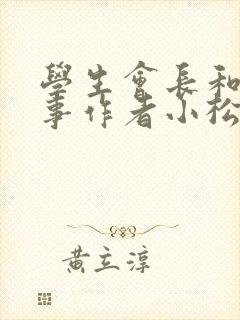 學生會長和
事作者小松
黃立淳